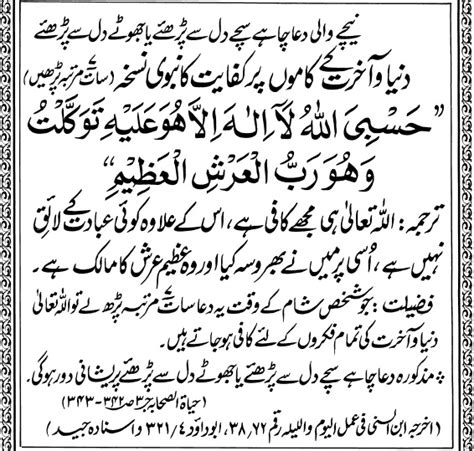 نیچے والی دعا چاہے سچے دل سے پڑھئے یا جھوٹے دل سے پڑھئے
دنیا و آخرت کے کاموں پر کفایت کا نبوی نسخہ (سات مرتبہ پڑھیں)
”حَسْبِیَ اللّٰهُ لَآ اِلٰهَ اِلَّا هُوَ عَلَیْهِ تَوَکَّلْتُ
وَهُوَ رَبُّ الْعَرْشِ الْعَظِیْمِ“
ترجمہ: اللہ تعالیٰ ہی مجھے کافی ہے، اس کے علاوہ کوئی عبادت کے لائق
نہیں ہے، اُسی پر میں نے بھروسہ کیا اور وہ عظیم عرش کا مالک ہے۔
فضیلت: جو شخص شام کے وقت یہ دعا سات مرتبہ پڑھ لے تو اللہ تعالیٰ
دنیا و آخرت کی تمام فکروں کے لئے کافی ہو جاتے ہیں۔
مذکورہ دعا چاہے سچے دل سے پڑھئے یا جھوٹے دل سے پڑھئے پریشانی دور ہوگی۔
(حیاۃ الصحابہ ج۳ ص ۳۴۲-۳۴۳)
(اخرجہ ابن السنی فی عمل الیوم واللیلہ رقم ۶۶، ۳۸، ابو داود ۴/۳۲۱ واسنادہ جید)